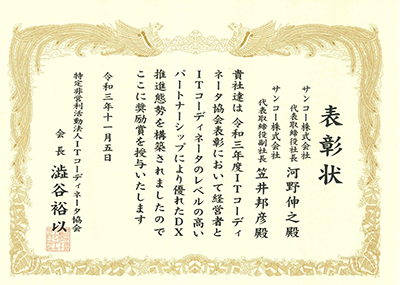 表彰状
サンコー株式会社
代表取締役社長 河野伸之殿
サンコー株式会社
代表取締役副社長 笠井邦彦殿
貴社達は令和三年度ITコーディ
ネータ協会表彰において経営者と
ITコーディネータのレベルの高い
パートナーシップにより優れたDX
推進態勢を構築されましたので
ここに奨励賞を授与いたします
令和三年十一月五日
特定非営利活動法人ITコーディネータ協会
会長 澁谷裕以